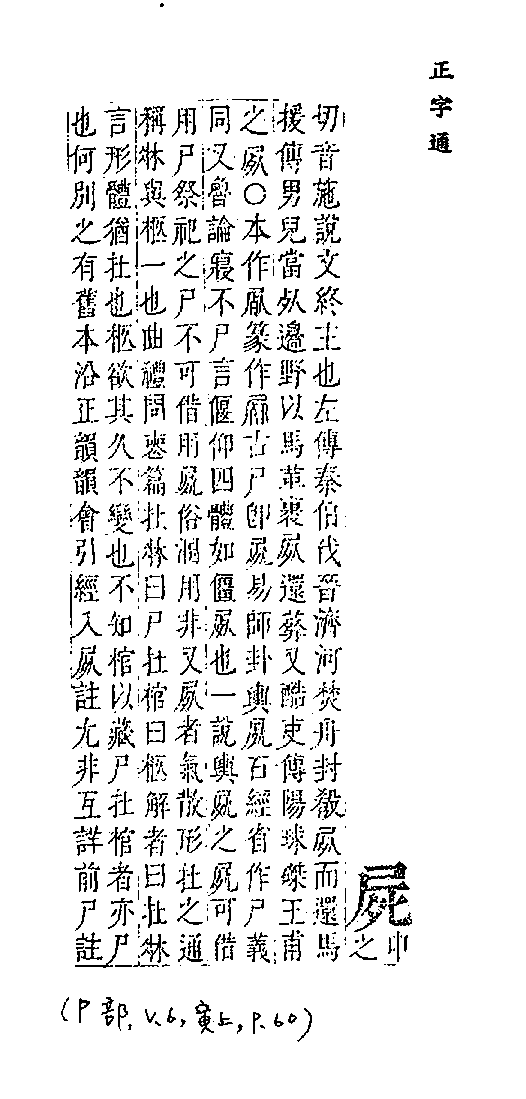 正字通
屍
申之
切音施說文終主也左傳秦伯伐晉濟河焚舟封殽屍而還馬
援傳男兒當死邊野以馬革裹屍還葬又酷吏傳陽球磔王甫
之屍○本作屍篆作屍古尸卽屍易師卦輿屍石經省作尸義
同又魯論寢不尸言偃仰四體如僵屍也一說輿屍之屍可借
用尸祭祀之尸不可借用屍俗溷用非又屍者氣散形在之通
稱牀與柩一也曲禮問喪篇在牀曰尸在棺曰柩解者曰在牀
言形體猶在也柩欲其久不變也不知棺以藏尸在棺者亦尸
也何別之有舊本沿正韻韻會引經入屍註尤非互詳前尸註
(尸部, V.6, 寅上, P.60)